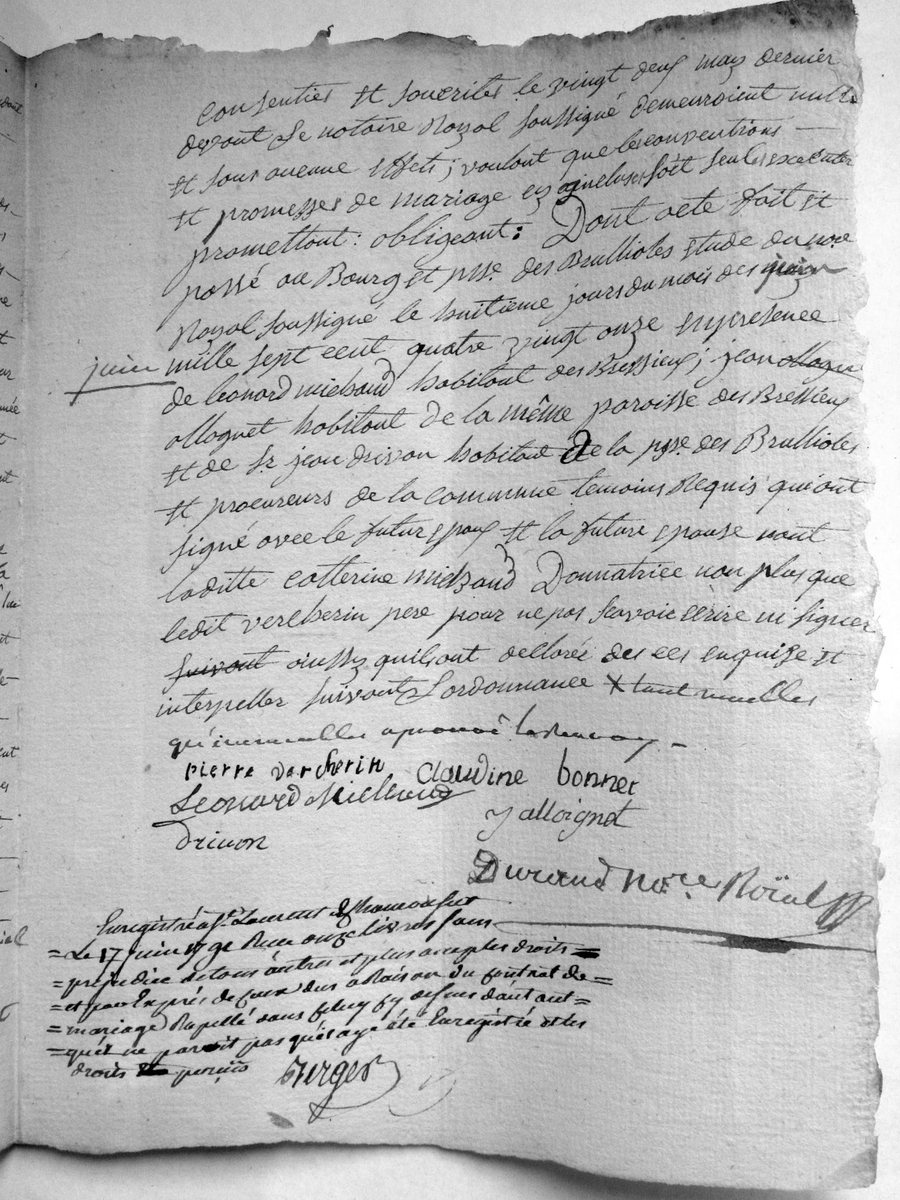 consenties et soucrites le vingt deux may dernier
devant le notaire Royal soussigné demeuroient nulle
et sous aucune effets; voulant que les conventions
et promesses de mariage cy incluses soit seules exécutée
promettant: obligeant: Dont acte fait et
passé au Bourg et psse. des Brullioles étude du nore
Royal soussigné le huitième jours du mois des juin
juin
mille sept cent quatre vingt onze en présence
de leonard michaud habitant des Bressieux; jean allognet
allognet habitant de la même paroisse des Bressieux
et de sr. jean drivon habitant De la psse. des Brullioles
et procureurs de la commune temoins Requis qui ont
signé avec le futur epoux et la future epouse nont
laditte catterine michaud Donnatrice non plus que
ledit vercherin pere pour ne pas scavoir ecrire ni signer
suivant ainssy quils ont declarée des ces enquise et
interpeller suivant Lordonnance X tant meubles
qu'immeubles aprouvé
pierre vercherin claudine bonnet
Leonard Michaud
y alloignet
Drivon
Durand Nore Roïal
Enregistré a St. Laurent de Chamousset
Le 17 juin 1791 Reçu onze livres sans
préjudice de tous autres et plus amples droits
et par Exprès de ceux dus a Raison du contrat de
mariage Rapellé dans celuy cy dessus d'autant
qu'il ne paroit pas qu'il aye été Enregistré et les
droits perçus